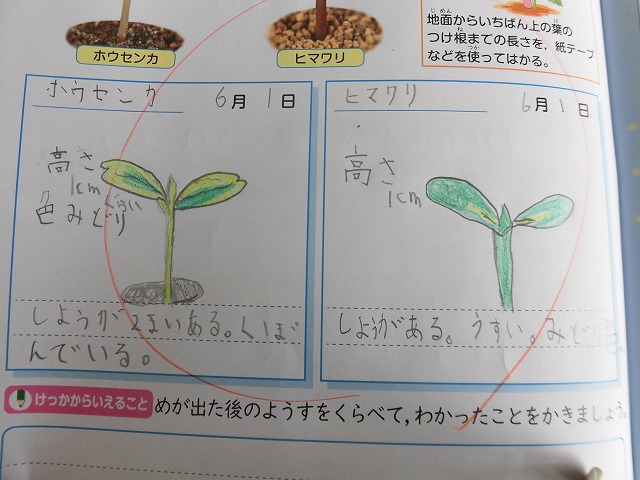 ホウセンカ
ヒマワリ
地面からいちばん上の葉の
つけ根までの長さを，紙テープ
などを使ってはかる。
ホウセンカ
6月1日
高さ
1cm
くらい
色みどり
しようが2まいある。くぼ
んでいる。
ヒマワリ
6月1日
高さ
1cm
しようがある。うすい。みどり
けっかからいえること
めが出た後のようすをくらべて，わかったことをかきましょう。